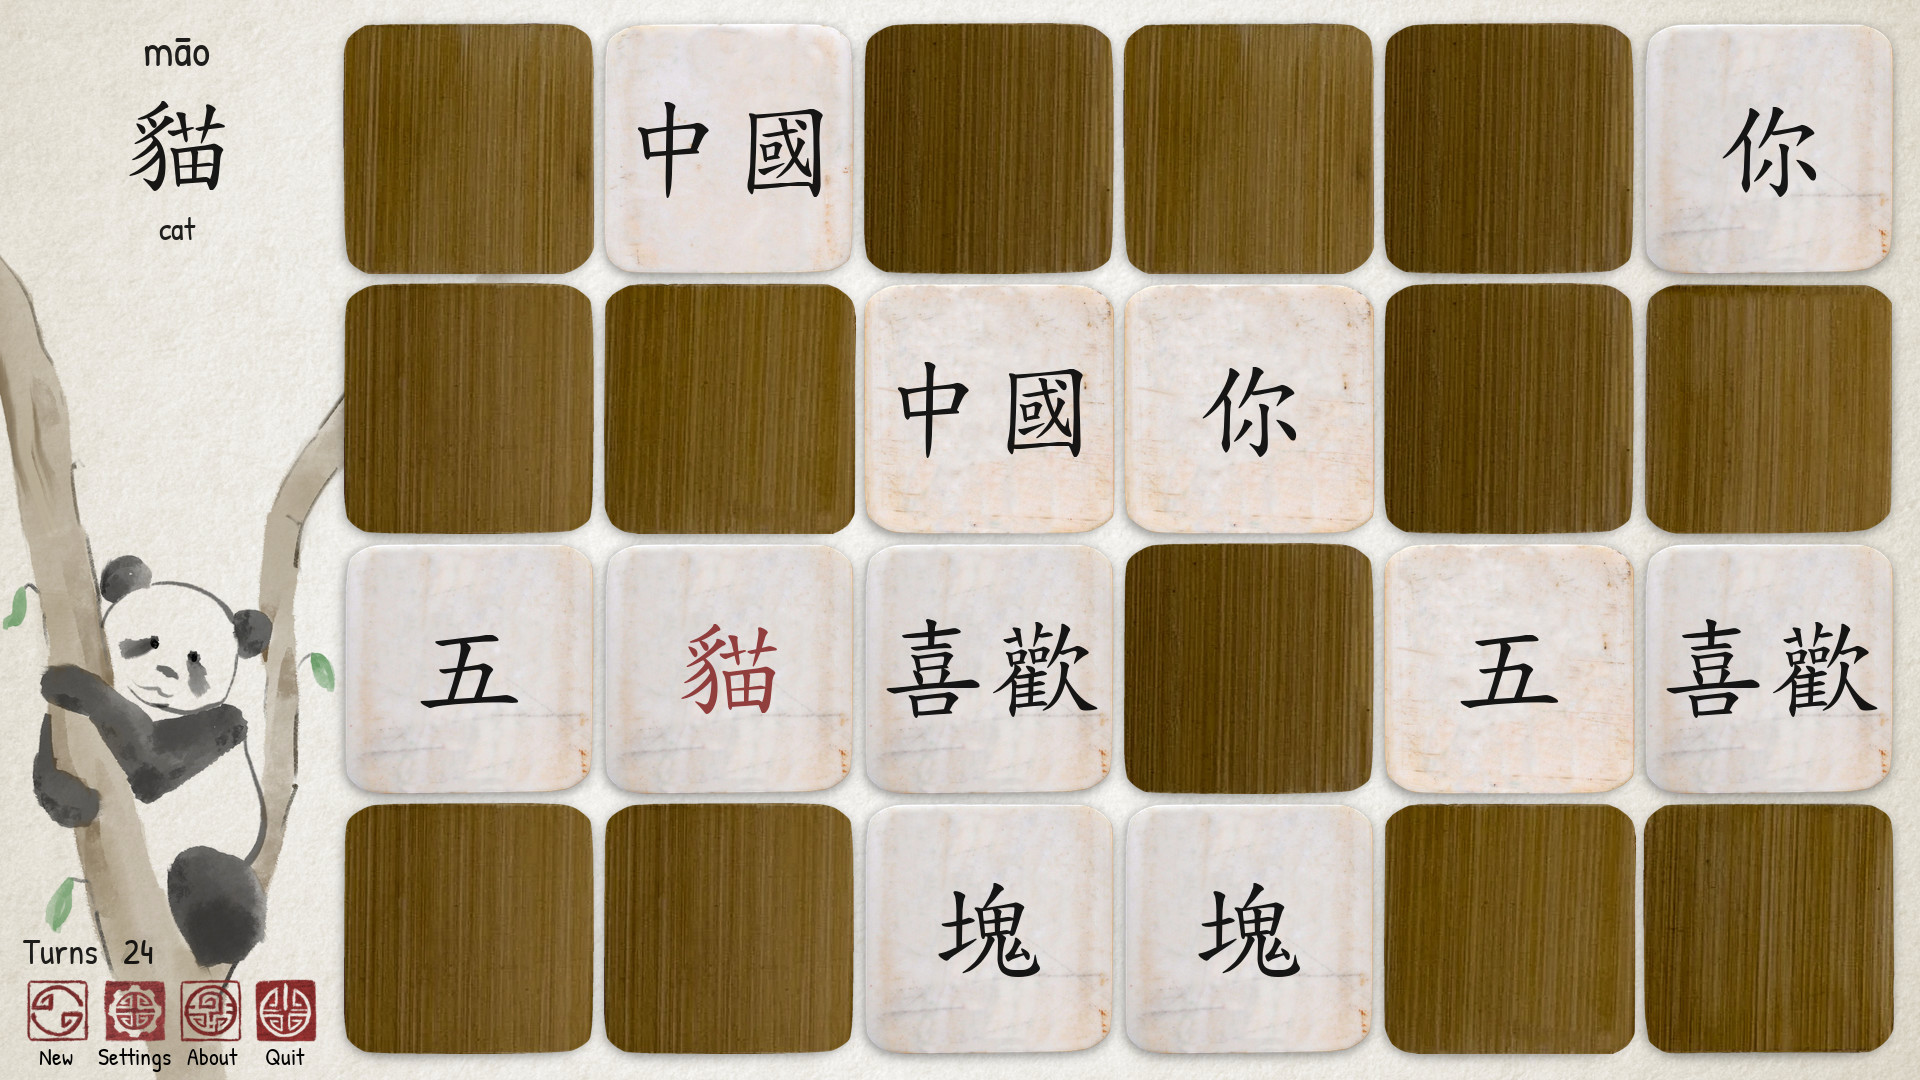 māo
貓
cat
中國
你
中國
你
五
貓
喜歡
五
喜歡
塊
塊
Turns 24
New Settings About Quit